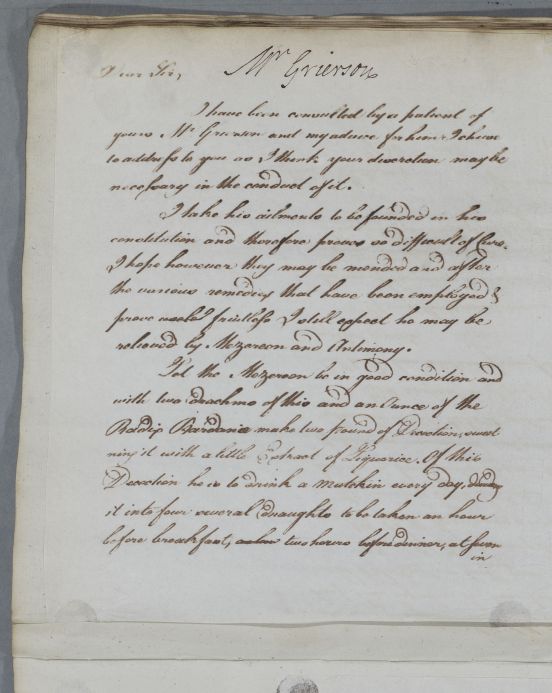 Dear Sir, Mr Grierson
I have been consulted by a patient of
yours Mr Grierson and my advice for him I chuse
to address to you as I think your discretion may be
necessary in the conduct of it.
I take his ailments to be founded in his
constitution and therefore proves so difficult of Cure.
I hope however they may be mended and after
the various remedies that have been employed &
prove fruitless I still expect he may be
relieved by Mezereon and Antimony.
Let the Mezereon be in good condition and
with two drachms of this and an Ounce of the
Radix Bardanae make two pound of Decoction, sweet
ning it with a little Extract of Liquorice. Of this
Decoction he is to drink a mutchkin every day,
it into four several draughts to be taken an hour
before breakfast, two hours before dinner, at seven
in